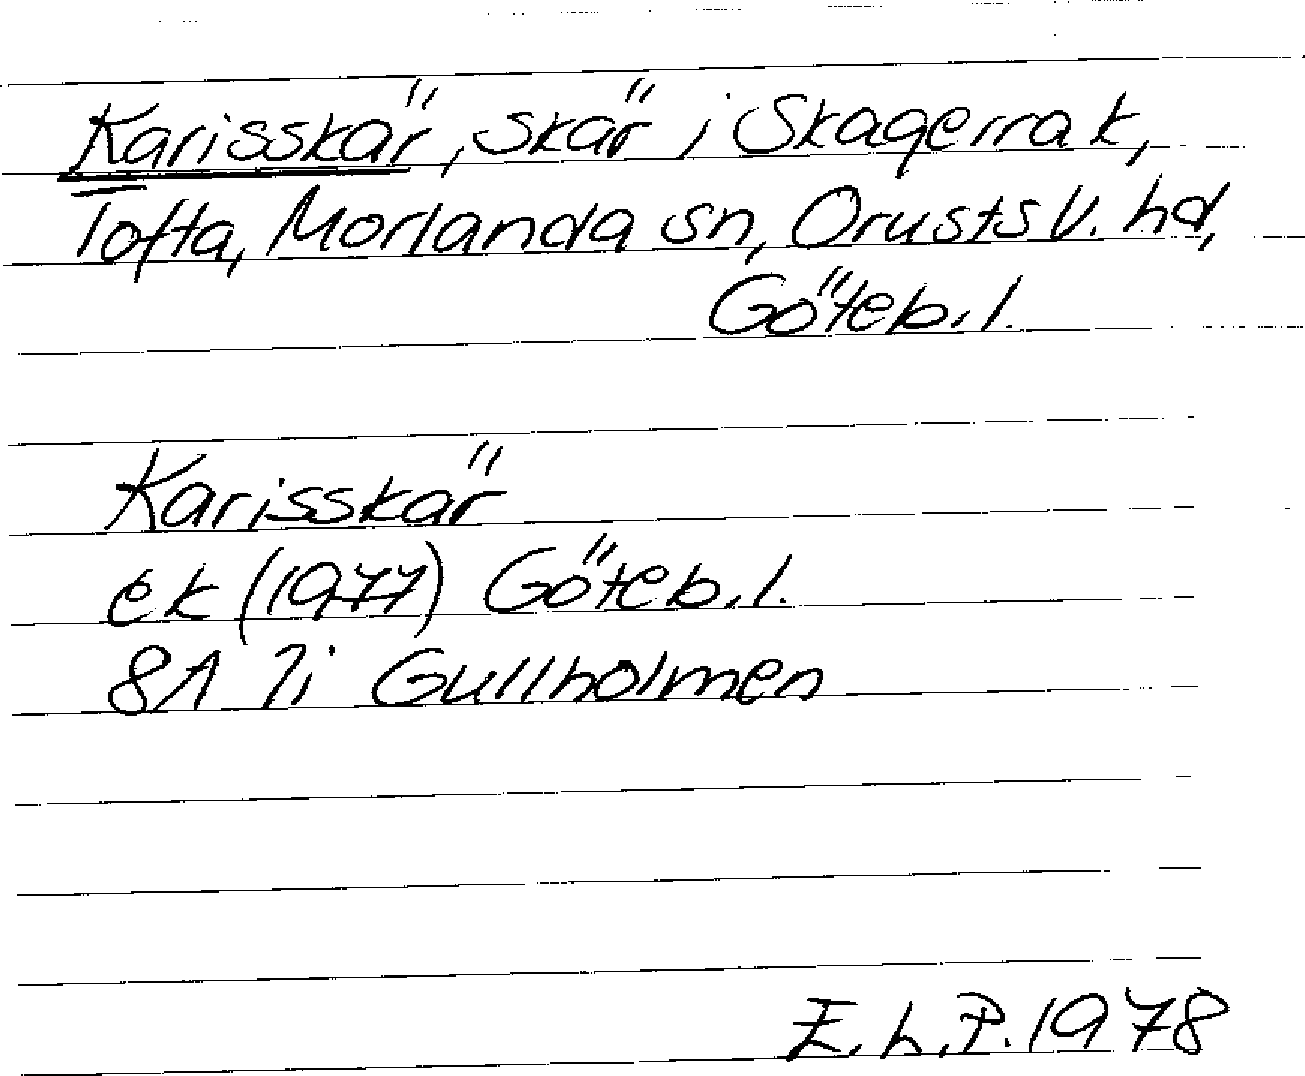 Karisskär, skär i Skagerrak,
Tofta, Morlanda sn, Orusts V. hd,
Göteb. l.
Karisskär
ek (1977) Göteb. l.
8A 7i Gullholmen
E.L.P. 1978